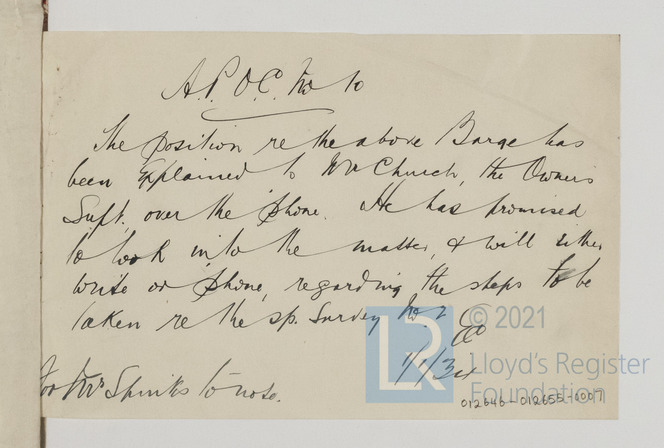 A.P.O.C. No 10
The position re the above Barge has
been explained to Mr Church, the Owners
Supt. over the 'phone. He has promised
to look into the matter, & will either
write or 'phone, regarding the steps to be
taken re the sp. Survey No. 2
1/1/34
For Mr Shinks to note.
© 2021
LR
Lloyd's Register
Foundation
012646-012655-0007